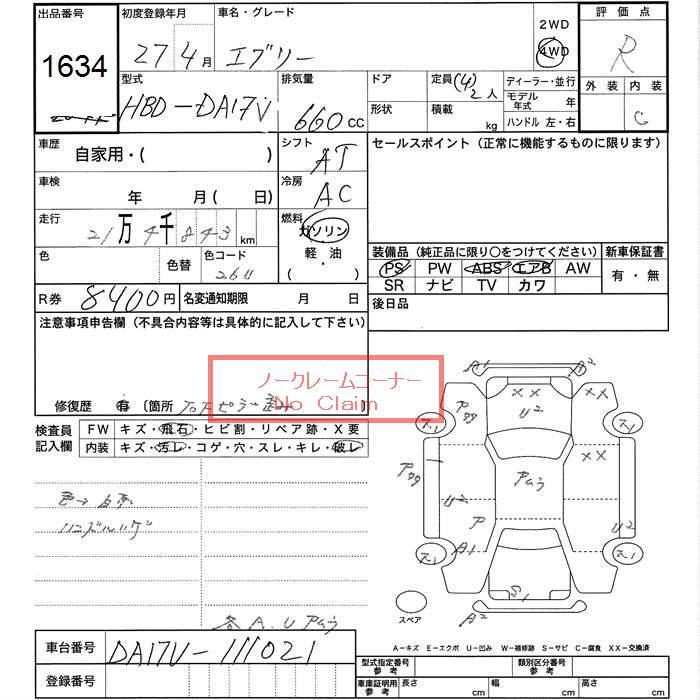 出品番号 初度登録年月 車名・グレード 2WD 評価点
1634 27 4月 エブリー 4WD R
型式 排気量 ドア 定員(4) 2人 ディーラー・並行 外装 内装
HBD-DA17V 660cc 形状 積載 kg モデル年式 年 C
ハンドル 左・右
車歴 自家用・( ) シフト AT セールスポイント(正常に機能するものに限ります)
車検 年 月( 日) 冷房 AC
走行 21万4千843km 燃料 ガソリン
軽・油
・( )
色 色替 色コード 26U 装備品(純正品に限り○をつけてください) 新車保証書
PS PW ABS エアB AW 有・無
SR ナビ TV カワ
R券 8400円 名変通知期限 月 日 後日品
注意事項申告欄(不具合内容等は具体的に記入して下さい)
ノークレームコーナー
No Claim
修復歴 有 (箇所
検査員記入欄 FW キズ・飛石・ヒビ割・リペア跡・X要
内装 キズ・汚レ・コゲ・穴・スレ・キレ・破レ
色→白系
ハンドルハゲ
各A.U アムラ
A1 A2
XX XX
U2
XX
アムラ
U2 ア U2
A1
S1
A2
スペア
A-キズ E-エクボ U-凹み W-補修跡 S-サビ C-腐食 XX-交換済
車台番号 DA17V-111021
登録番号
型式指定番号 参考 類別区分番号 参考
車庫証明用 参考 長さ cm 幅 cm 高さ cm